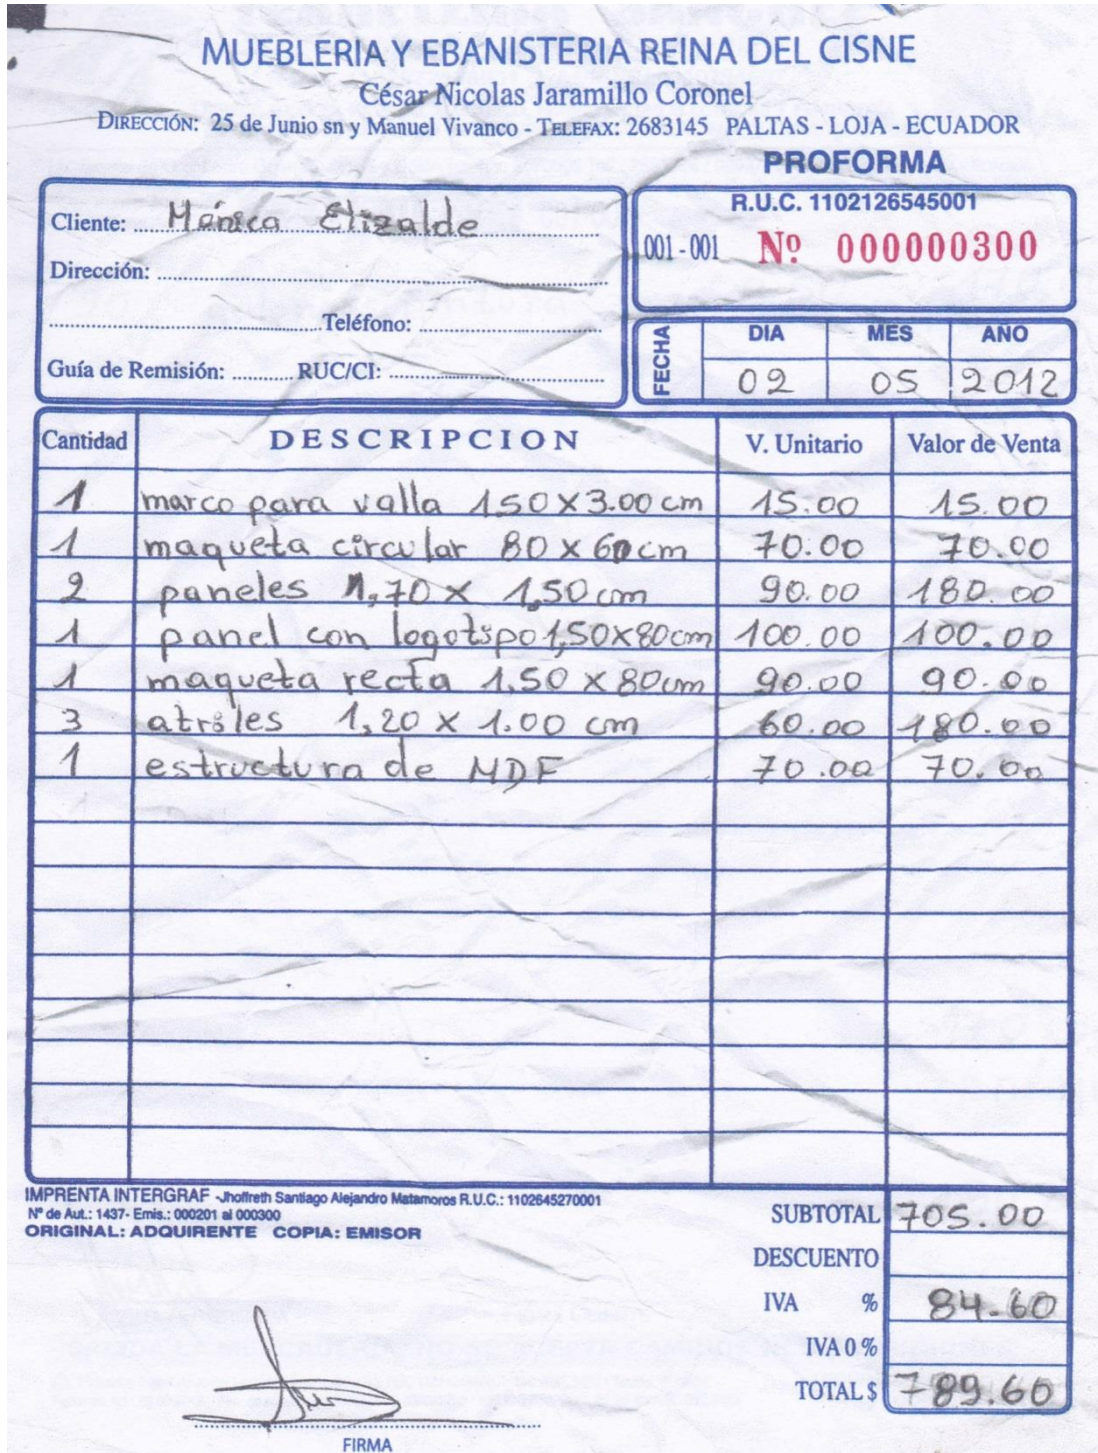 MUEBLERIA Y EBANISTERIA REINA DEL CISNE
César Nicolas Jaramillo Coronel
DIRECCIÓN: 25 de Junio sn y Manuel Vivanco - TELEFAX: 2683145 PALTAS - LOJA - ECUADOR
PROFORMA
R.U.C. 1102126545001
001 - 001 Nº 000000300
Cliente: Mónica Elizalde
Dirección:
Teléfono:
Guía de Remisión: RUC/CI:
FECHA DIA MES AÑO
02 05 2012
Cantidad DESCRIPCION V. Unitario Valor de Venta
1 marco para valla 1.50 X 3.00 cm 15.00 15.00
1 maqueta circular 80 x 60 cm 70.00 70.00
2 paneles 1,70 x 1,50 cm 90.00 180.00
1 panel con logotipo 1,50x80cm 100.00 100.00
1 maqueta recta 1.50 x 80cm 90.00 90.00
3 atriles 1,20 x 1.00 cm 60.00 180.00
1 estructura de MDF 70.00 70.00
IMPRENTA INTERGRAF -Jhoffreth Santiago Alejandro Matamoros R.U.C.: 1102645270001
Nº de Aut.: 1437- Emis.: 000201 al 000300
ORIGINAL: ADQUIRENTE COPIA: EMISOR
SUBTOTAL 705.00
DESCUENTO
IVA % 84.60
IVA 0 %
TOTAL $ 789.60
FIRMA